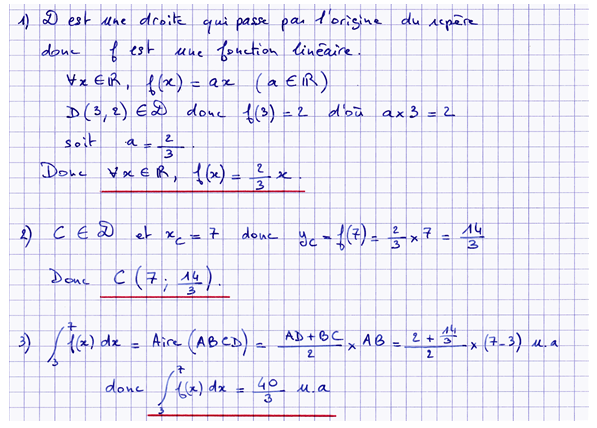 1) 𝒟 est une droite qui passe par l'origine du repère
donc f est une fonction linéaire.
∀x ∈ ℝ, f(x) = ax (a ∈ ℝ)
D(3, 2) ∈ 𝒟 donc f(3) = 2 d'où a×3 = 2
soit a = 2/3.
Donc ∀x ∈ ℝ, f(x) = 2/3 x.
2) C ∈ 𝒟 et x_C = 7 donc y_C = f(7) = 2/3 × 7 = 14/3
Donc C(7 ; 14/3).
3) ∫₃⁷ f(x) dx = Aire (ABCD) = (AD + BC)/2 × AB = (2 + 14/3)/2 × (7-3) u.a
donc ∫₃⁷ f(x) dx = 40/3 u.a